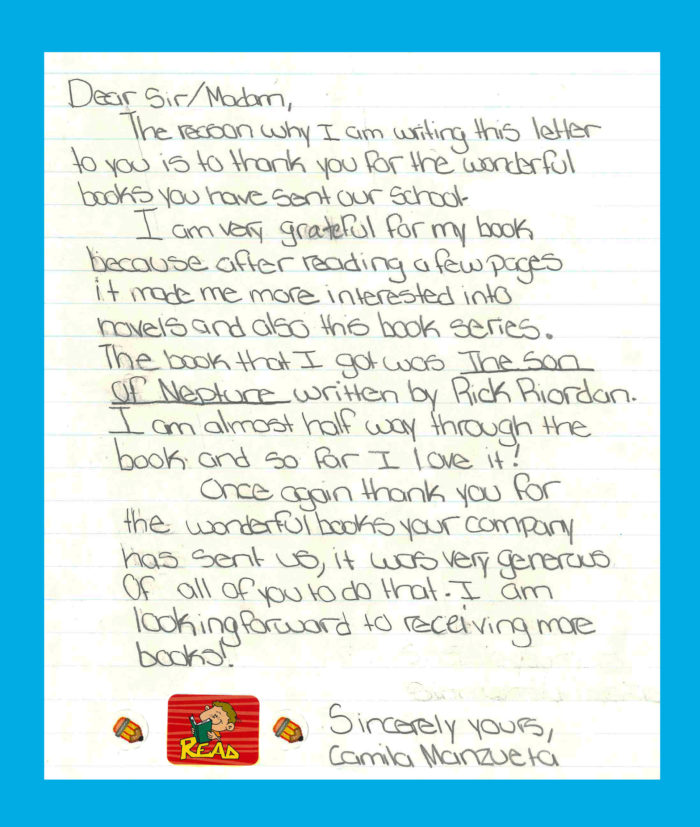 Dear Sir/Madam,
The reason why I am writing this letter
to you is to thank you for the wonderful
books you have sent our school.
I am very grateful for my book
because after reading a few pages
it made me more interested into
novels and also this book series.
The book that I got was The Son
Of Neptune written by Rick Riordan.
I am almost half way through the
book and so far I love it!
Once again thank you for
the wonderful books your company
has sent us, it was very generous
Of all of you to do that. I am
looking forward to receiving more
books!
Sincerely yours,
Camila Manzueta
READ